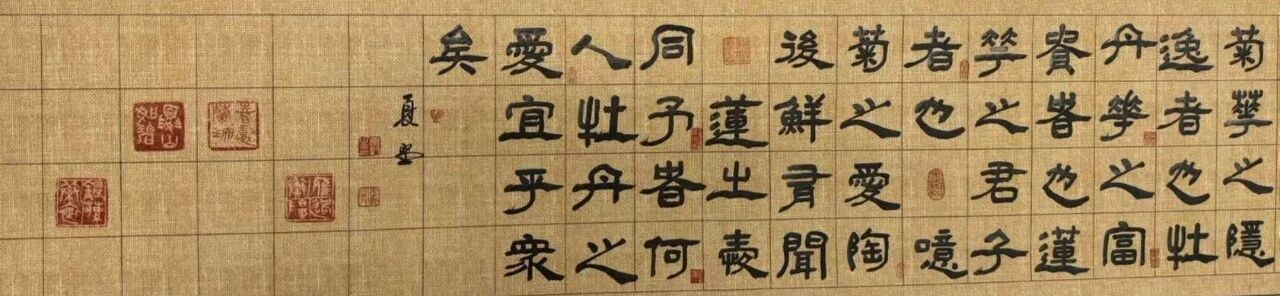 菊華之隱
逸者也牡
丹華之富
貴者也蓮
華之君子
者也噫
菊之愛陶
後鮮有聞
蓮之愛
同予者何
人牡丹之
愛宜乎衆
矣
夏